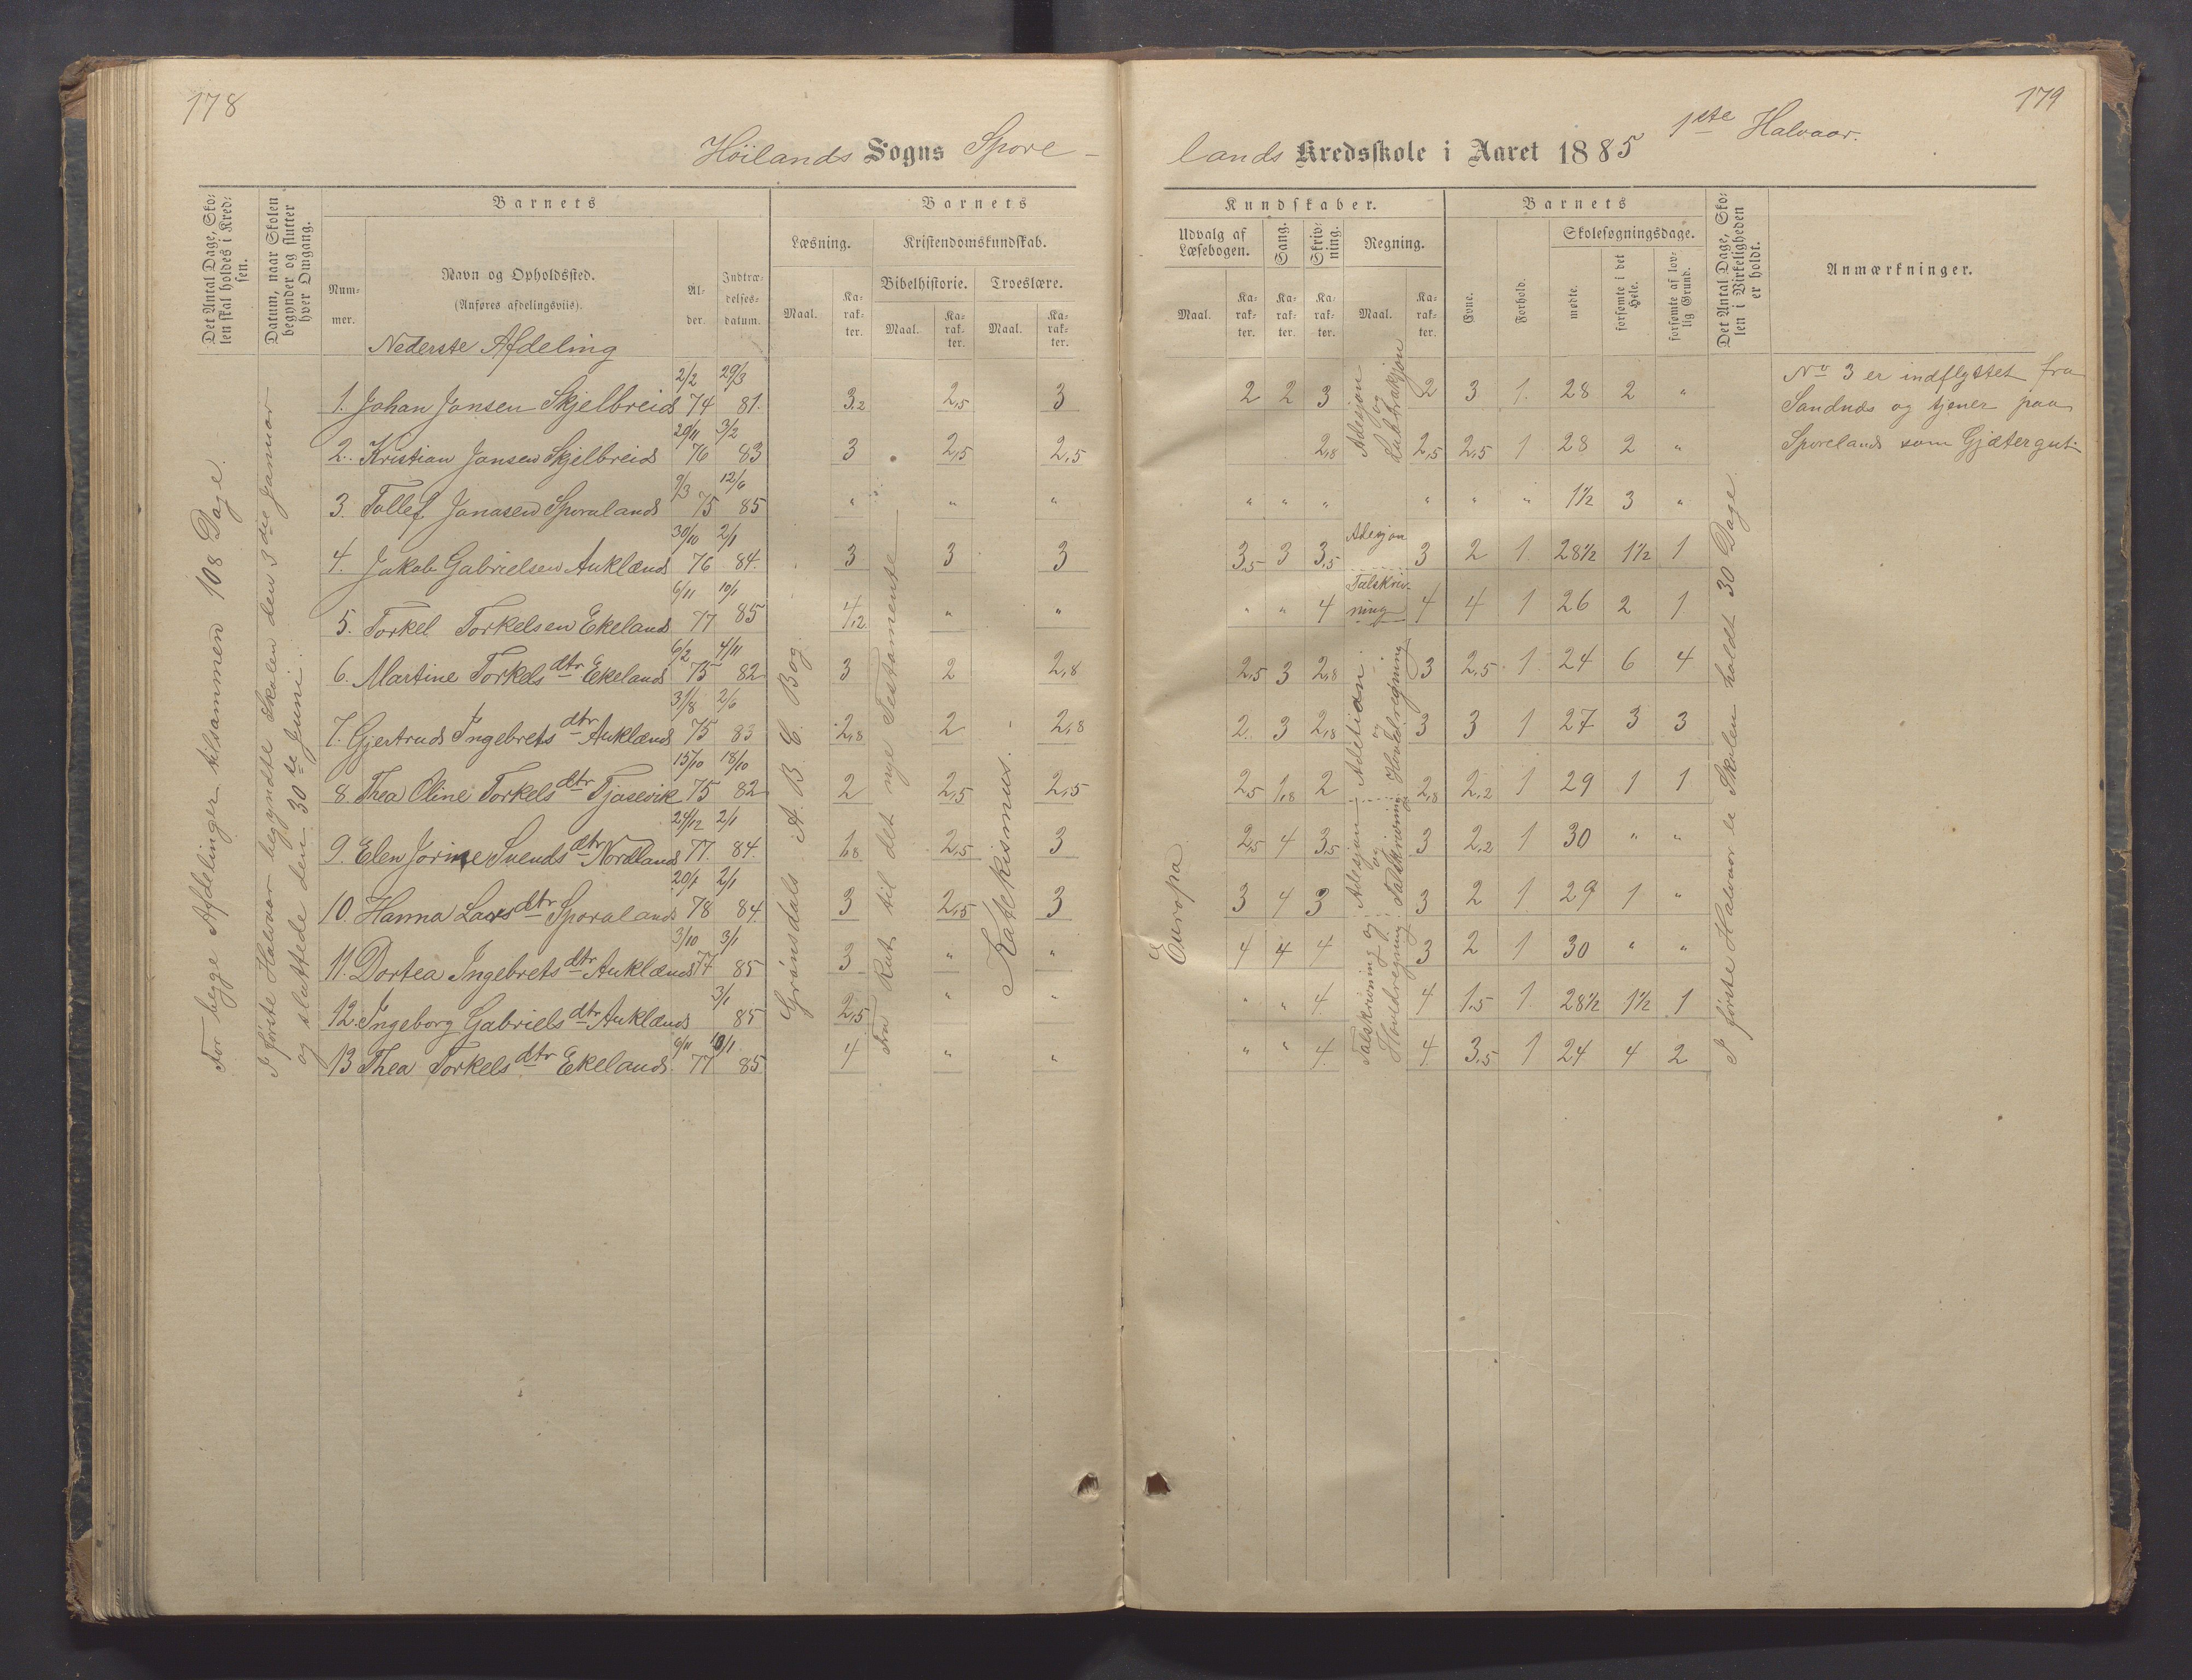 178
Höilands Sogns Spore-
Det Antal Dage, Sko-
len skal holdes i Kred-
sen.
Datum, naar Skolen
begynder og slutter
hver Omgang.
Barnets
Num-
mer.
Navn og Opholdssted.
(Anføres afdelingsviis).
Al-
der.
Indtræ-
delses-
datum.
Barnets
Læsning.
Maal.
Ka-
rak-
ter.
Kristendomskundskab.
Bibelhistorie.
Maal.
Ka-
rak-
ter.
Troeslære.
Maal.
Ka-
rak-
ter.
Nederste Afdeling
For begge Afdelinger tilsammen 108 Dage.
I første Halvaar begyndte Skolen den 3die Januar
og sluttede den 30te Juni.
1. Johan Jonsen Skjelbreid 2/2 74 29/3 81. 3,2 2,5 3
2. Kristian Jonsen Skjelbreid 29/11 76 3/2 83 3 2,5 2,5
3. Tollef Jonasen Sporaland 9/3 75 12/6 85 " " "
4. Jakob Gabrielsen Auklænd 30/10 76 2/1 84. 3 3 3
5. Torkel Torkelsen Ekeland 6/11 77 10/1 85 4,2 " "
6. Martine Torkelsdtr Ekeland 6/2 75 4/11 82 3 2 2,8
7. Gjertrud Ingebretsdtr Auklænd 31/8 75 2/6 83 2,8 2 2,8
8. Thea Oline Torkelsdtr Tjasevik 15/10 75 18/10 82 2 2,5 2,5
9. Elen Jorine Svendsdtr Nordland 24/12 77. 2/1 84. 1,8 2,5 3
10. Hanna Larsdtr Sporaland 20/1 78 2/1 84. 3 2,5 3
11. Dortea Ingebretsdtr Auklænd 3/10 77 3/1 85 3 " "
12. Ingeborg Gabrielsdtr Auklænd 3/1 85 2,5 " "
13 Thea Torkelsdtr Ekeland. 6/11 77 10/1 85 4 " "
Grönsdals A. B. C. Bog.
Fra Rut til det nye Testamente
Katekismus.
179
1ste Halvaar.
lands Kredsskole i Aaret 1885
Kundskaber.
Udvalg af
Læsebogen.
Maal.
Ka-
rak-
ter.
Sang.
Ka-
rak-
ter.
Skriv-
ning.
Ka-
rak-
ter.
Regning.
Maal.
Ka-
rak-
ter.
Barnets
Evne.
Forhold.
Skolesøgningsdage.
mødte.
forsømte i det
Hele.
forsømte af lov-
lig Grund.
Det Antal Dage, Sko-
len i Virkeligheden
er holdt.
Anmærkninger.
2 2 3 2 3 1. 28 2 "
2,8 2,5 2,5 1 28 2 "
" " " " " " 1½ 3 "
3,5 3 3,5 3 2 1 28½ 1½ 1
" " 4 4 4 1 26 2 1
2,5 3 2,8 3 2,5 1 24 6 4
2. 3 2,8 3 3 1 27 3 3
2,5 1,8 2 2,8 2,2 1 29 1 1
2,5 4 3,5 3 2,2 1 30 " "
3 4 3 3 2 1 29 1 "
4 4 4 3 2 1 30 " "
" " 4. 4 1,5 1 28½ 1½ 1
" " 4. 4 3,5 1 24 4 2
Europa.
Adesjon
og
Subtraksjon
Adesjon
Talskriv-
ning
Adetion
og
Hovdalregning
Adesjon
og
Talskrivning
Talskrivning og
Hovedregning
I første Halvaar er Skolen holdt 30 Dage.
No 3 er indflyttet fra
Sandnæs og tjener paa
Sporeland som Gjætergut.